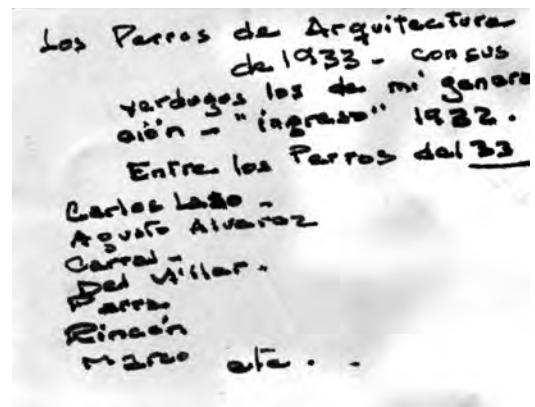 Los Perros de Arquitectura
de 1933 - con sus
verdugos los de mi genera
ción - "ingreso" 1932.
Entre los Perros del 33
Carlos Lazo -
Agusto Alvarez
Carral -
Del Villar.
Parra.
Rincón
Marco etc. . .